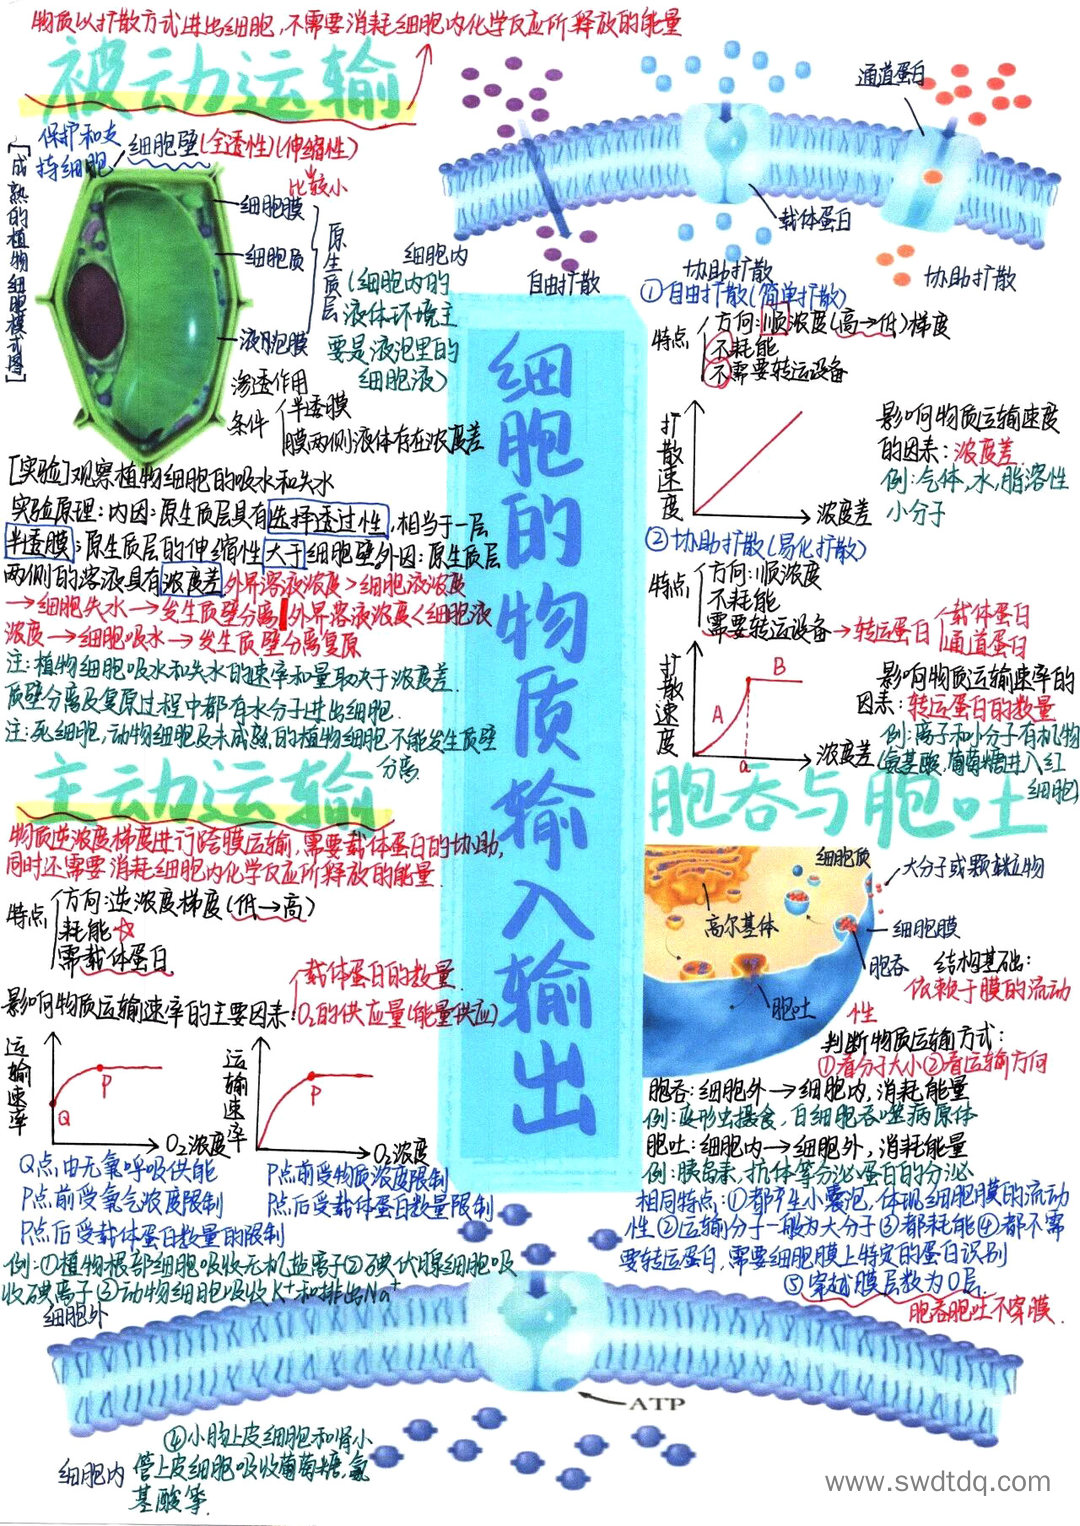 物质以扩散方式进出细胞,不需要消耗细胞内化学反应所释放的能量
被动运输
[成熟的植物细胞模式图]
保护和支
持细胞
细胞壁(全透性)(伸缩性)
比较小
细胞膜
细胞质
液泡膜
原生质层
细胞内
(细胞内的
液体环境主
要是液泡里的
细胞液)
渗透作用
条件
半透膜
膜两侧液体存在浓度差
[实验]观察植物细胞的吸水和失水
实验原理:内因:原生质层具有选择透过性,相当于一层
半透膜;原生质层的伸缩性大于细胞壁外因:原生质层
两侧的溶液具有浓度差外界溶液浓度>细胞液浓度
→细胞失水→发生质壁分离 外界溶液浓度<细胞液
浓度→细胞吸水→发生质壁分离复原
注:植物细胞吸水和失水的速率和量取决于浓度差.
质壁分离及复原过程中都有水分子进出细胞.
注:死细胞,动物细胞及未成熟的植物细胞不能发生质壁
分离.
通道蛋白
载体蛋白
自由扩散
协助扩散
协助扩散
细胞的物质输入输出
①自由扩散(简单扩散)
特点
方向:顺浓度(高→低)梯度
不耗能
不需要转运设备
扩散速度
浓度差
影响物质运输速度
的因素:浓度差.
例:气体,水,脂溶性
小分子
②协助扩散(易化扩散)
特点
方向:顺浓度
不耗能
需要转运设备→转运蛋白
载体蛋白
通道蛋白
扩散速度
A
B
a
浓度差
影响物质运输速率的
因素:转运蛋白的数量
例:离子和小分子有机物
(氨基酸.葡萄糖进入红
细胞)
主动运输
物质逆浓度梯度进行跨膜运输,需要载体蛋白的协助,
同时还需要消耗细胞内化学反应所释放的能量.
特点
方向:逆浓度梯度(低→高)
耗能☆
需载体蛋白
影响物质运输速率的主要因素
载体蛋白的数量.
O₂的供应量(能量供应)
运输速率
Q
P
O₂浓度
运输速率
P
O₂浓度
Q点由无氧呼吸供能
P点前受氧气浓度限制
P点后受载体蛋白数量的限制
P点前受物质浓度限制
P点后受载体蛋白数量限制
例:①植物根部细胞吸收无机盐离子②碘伏腺细胞吸
收碘离子③动物细胞吸收K⁺和排出Na⁺
细胞外
④小肠上皮细胞和肾小
管上皮细胞吸收葡萄糖,氨
基酸等.
细胞内
ATP
胞吞与胞吐
细胞质
大分子或颗粒物
高尔基体
细胞膜
胞吞
胞吐
结构基础:
依赖于膜的流动
性
判断物质运输方式:
①看分子大小②看运输方向
胞吞:细胞外→细胞内,消耗能量
例:变形虫摄食,白细胞吞噬病原体
胞吐:细胞内→细胞外,消耗能量
例:胰岛素,抗体等分泌蛋白的分泌
相同特点:①都产生小囊泡,体现细胞膜的流动
性②运输分子一般为大分子③都耗能④都不需
要转运蛋白,需要细胞膜上特定的蛋白识别
⑤穿越膜层数为0层.
胞吞胞吐不穿膜.
www.swdtdq.com